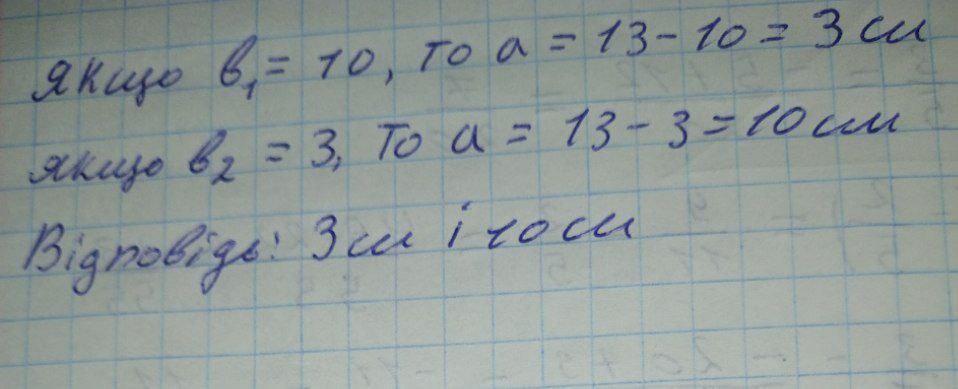 якщо в₁ = 10, то а = 13 - 10 = 3 см
якщо в₂ = 3, то а = 13 - 3 = 10 см
Відповідь: 3 см і 10 см